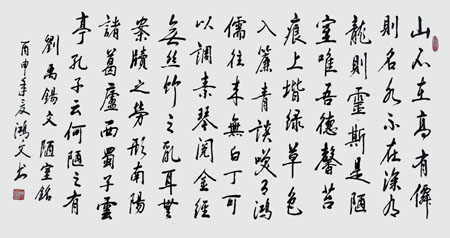 山不在高有僊
則名水不在深有
龍則靈斯是陋
室唯吾德馨苔
痕上堦綠草色
入簾青談笑有鴻
儒往来無白丁可
以調素琴閱金經
無絲竹之乱耳無
案牘之勞形南陽
諸葛廬西蜀子雲
亭孔子云何陋之有
劉禹錫文陋室銘
丙申年夏鴻文书